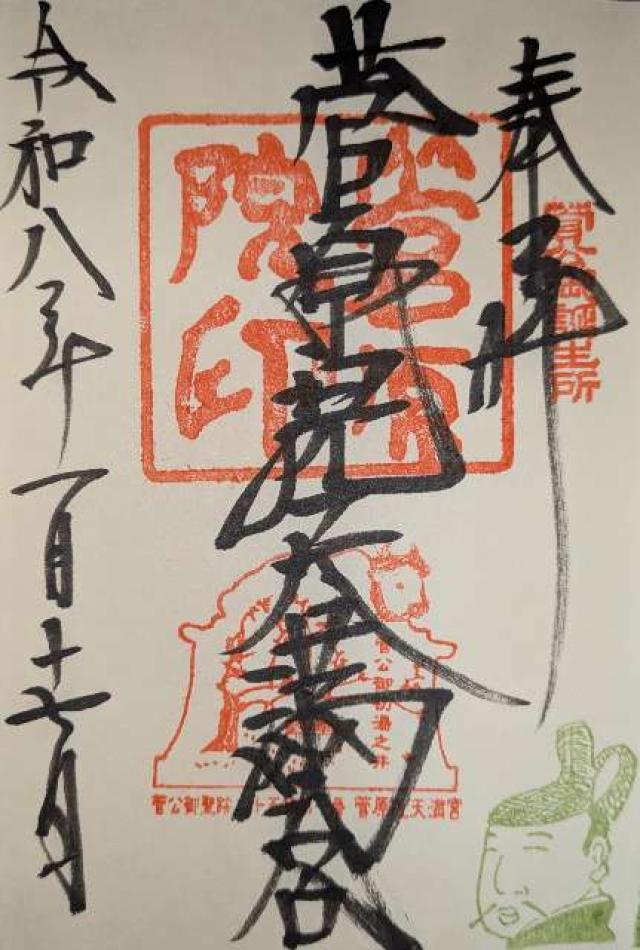 奉拝
菅公御誕生所
菅原院天満宮
菅原院印
菅公御初湯之井
菅公御聖跡 十五 番 菅原院天満宮
令和八年一月十七日